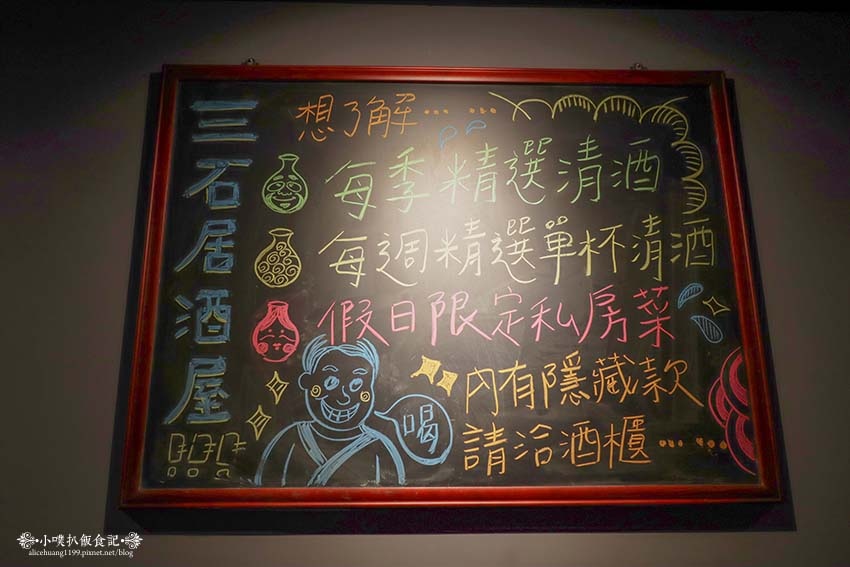 三石居酒屋
想了解… …
每季精選清酒
每週精選單杯清酒
假日限定私房菜
內有隱藏款
請洽酒櫃… …
喝
小噗扒飯食記
alicehuang1199.pixnet.net/blog